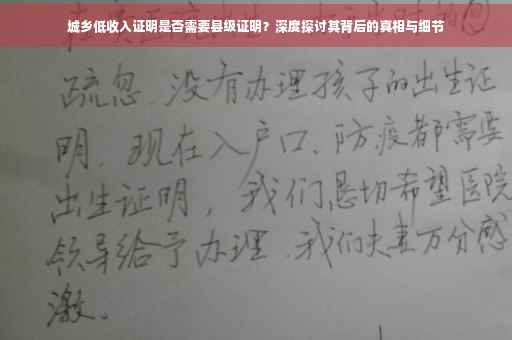 城乡低收入证明是否需要县级证明？深度探讨其背后的真相与细节
疏忽、没有办理孩子的出生证
明、现在入户口、防疫都需要
出生证明，我们恳切希望医院
领导给予办理、我们夫妻万分感
激。